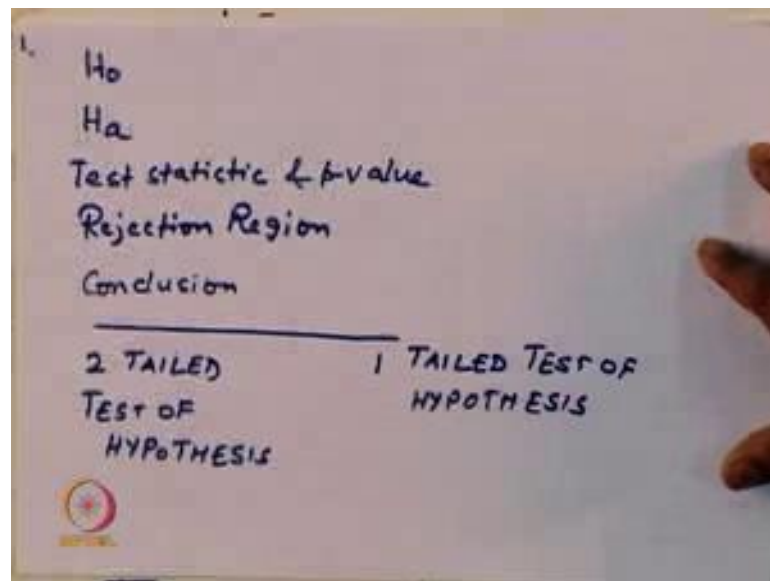 1.
Ho
Ha
Test statictic & p-value
Rejection Region
Conclusion
2 TAILED TEST OF HYPOTHESIS
1 TAILED TEST OF HYPOTHESIS